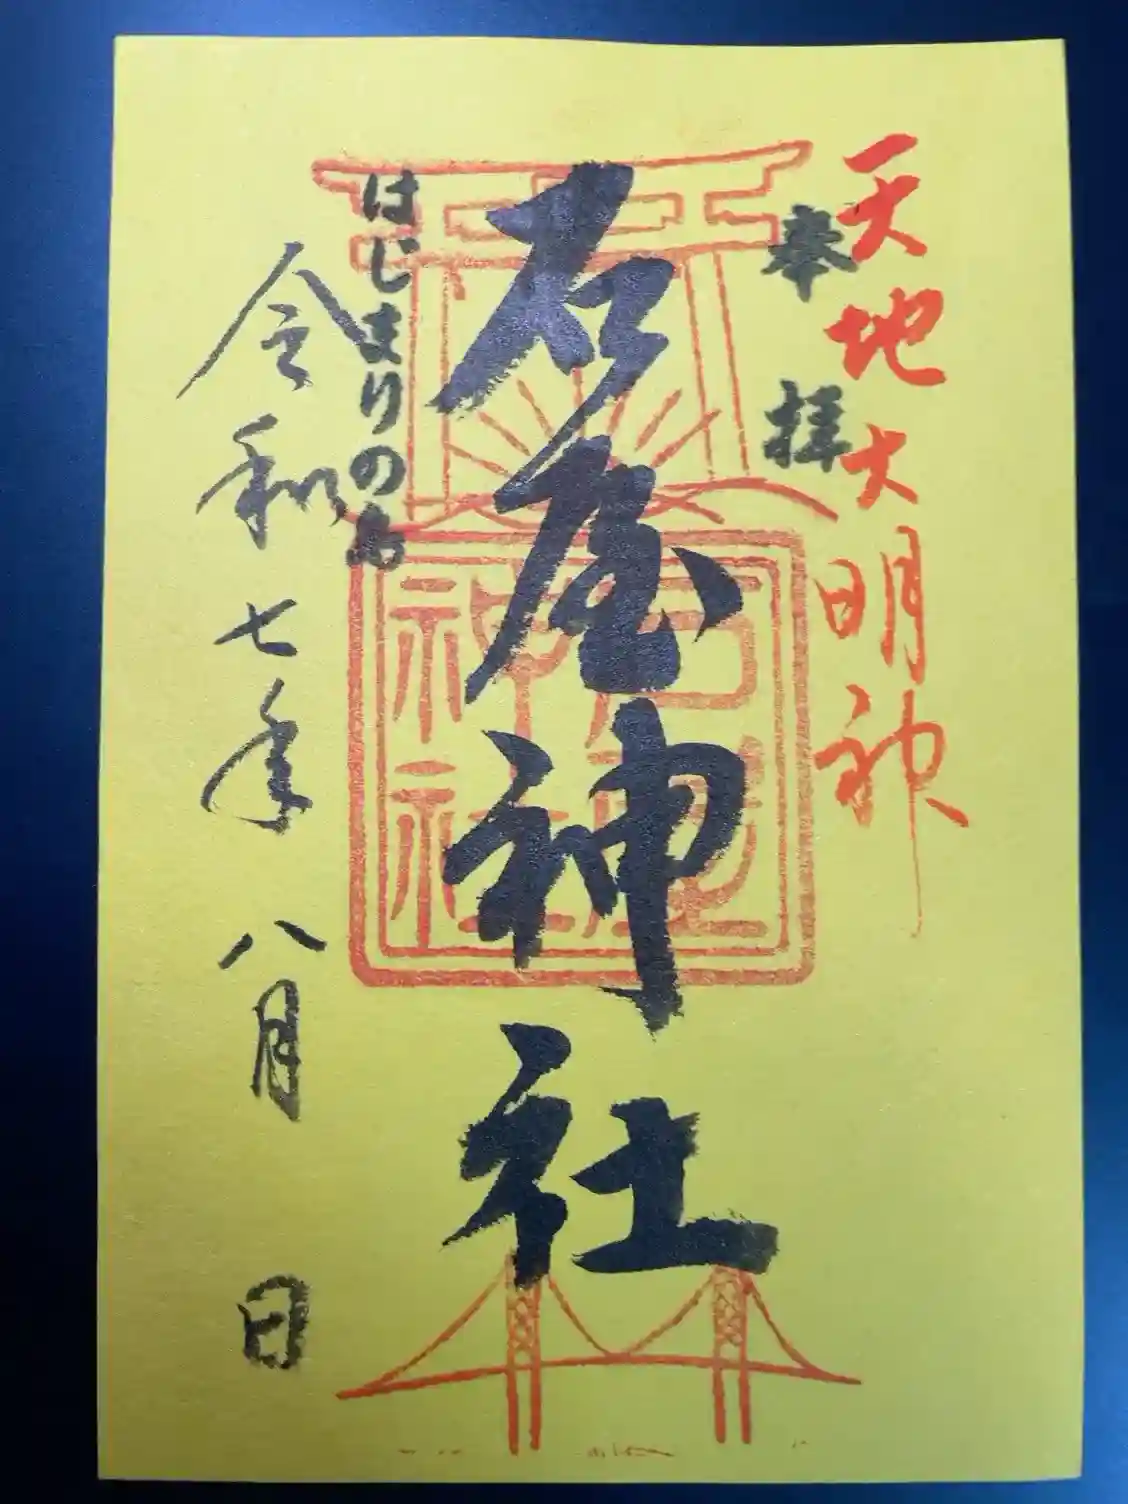 天地大明神
奉拝
石屋神社
石屋神社
はじまりの島
令和七年八月 日